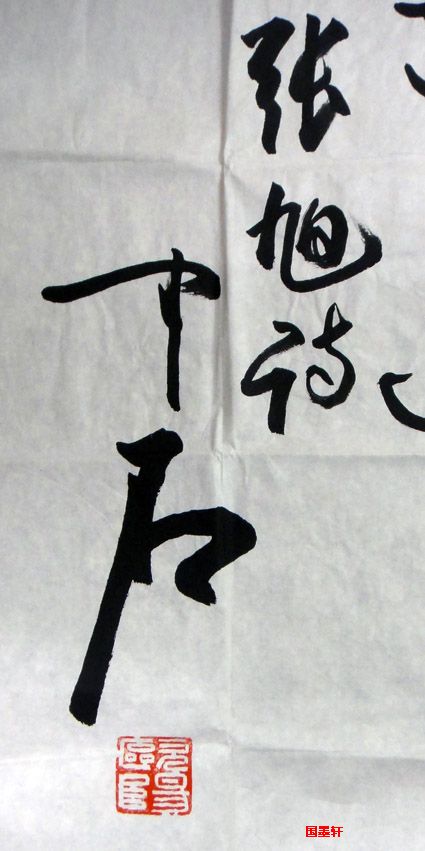 张旭诗
中石
国墨轩